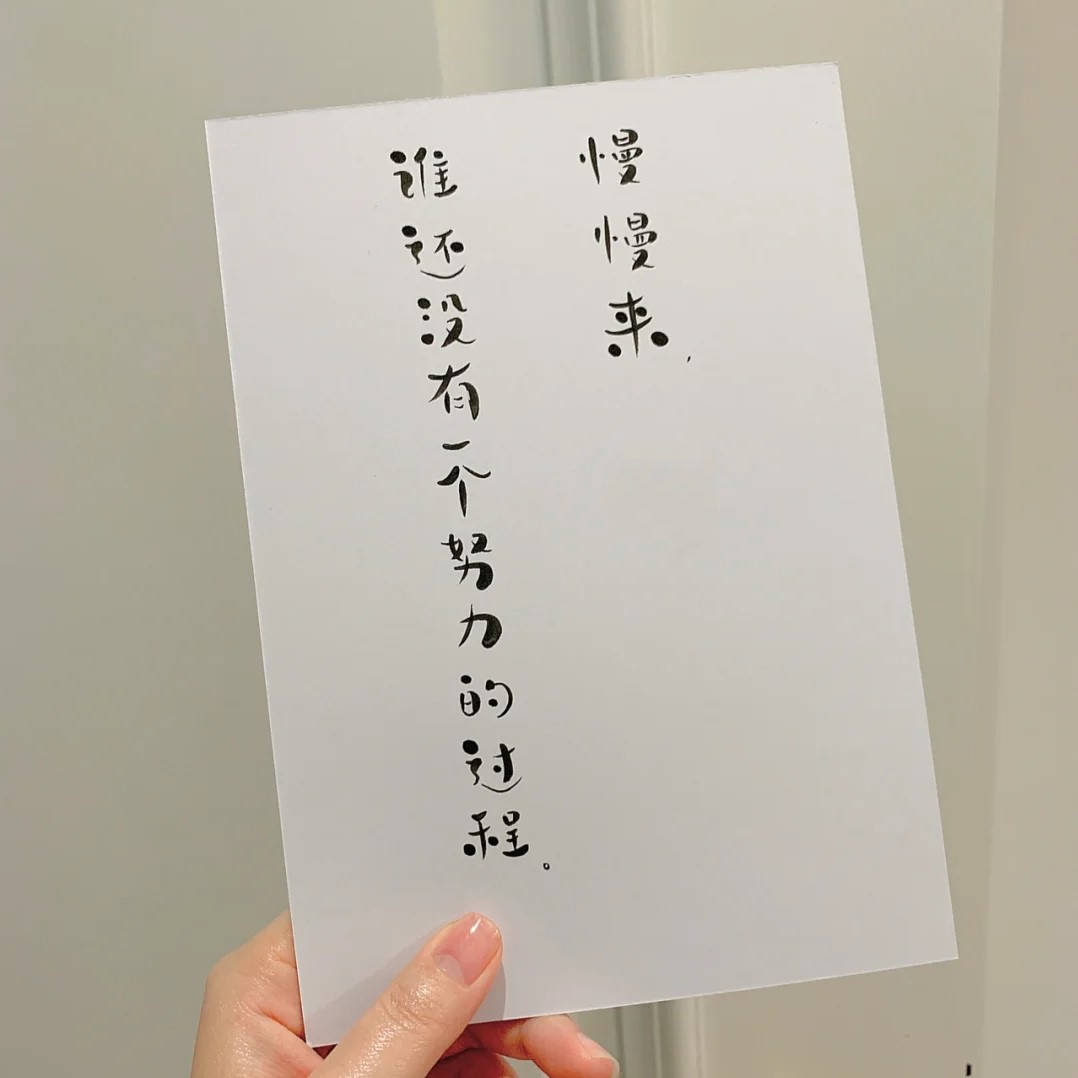 慢慢来,
谁还没有一个努力的过程。